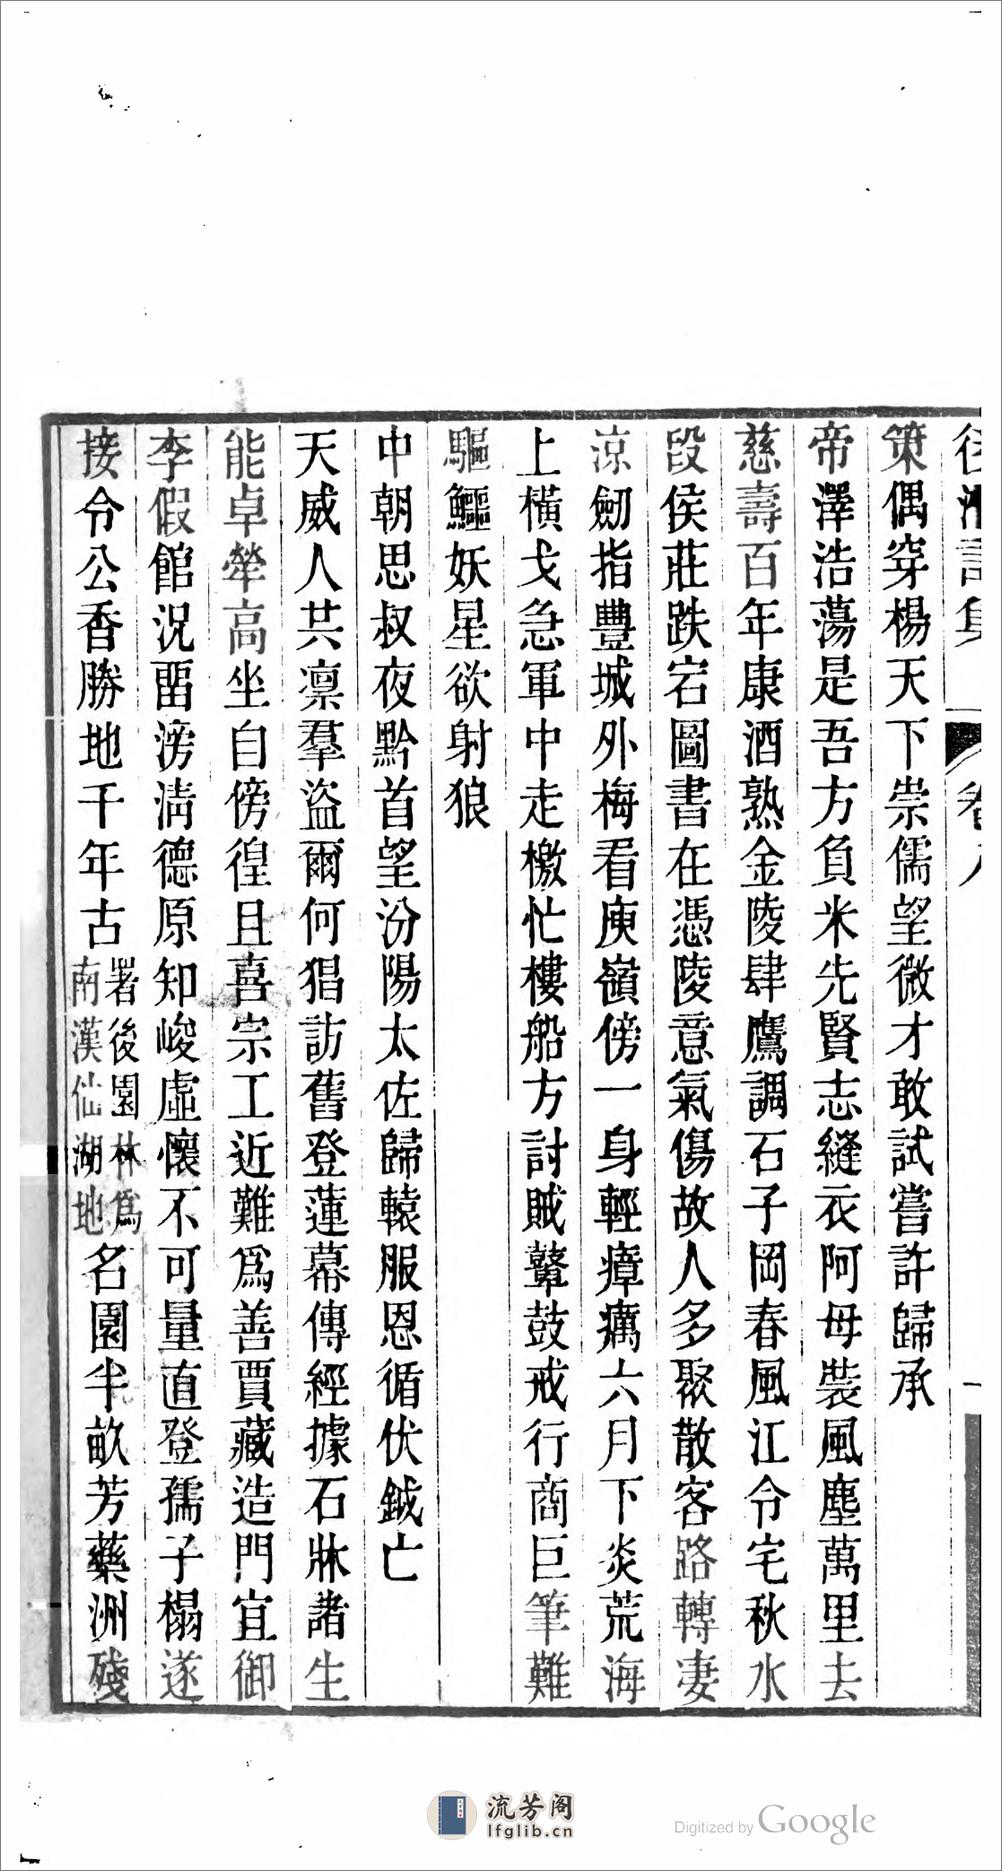 策偶穿楊天下崇儒望微才敢試嘗許歸承
帝澤浩蕩是吾方負米先賢志縫衣阿母裝風塵萬里去
慈壽百年康酒熟金陵肆鷹調石子岡春風江令宅秋水
段侯莊跌宕圖書在憑陵意氣傷故人多聚散客路轉凄
涼劒指豐城外梅看庾嶺傍一身輕瘴癘六月下炎荒海
上橫戈急軍中走檄忙樓船方討賊鼙鼓戒行商巨筆難
驅鱷妖星欲射狼
中朝思叔夜黔首望汾陽太佐歸轅服恩循伏鉞亡
天威人共凛羣盜爾何猖訪舊登蓮幕傳經據石牀諸生
能卓犖高坐自傍徨且喜宗工近難爲善賈藏造門宜御
李假館況畱滂淸德原知峻虛懷不可量直登孺子榻遂
接令公香勝地千年古署後園林爲南漢仙湖地名園半畝芳藥洲殘
流芳阁
lfglib.cn
Digitized by Google